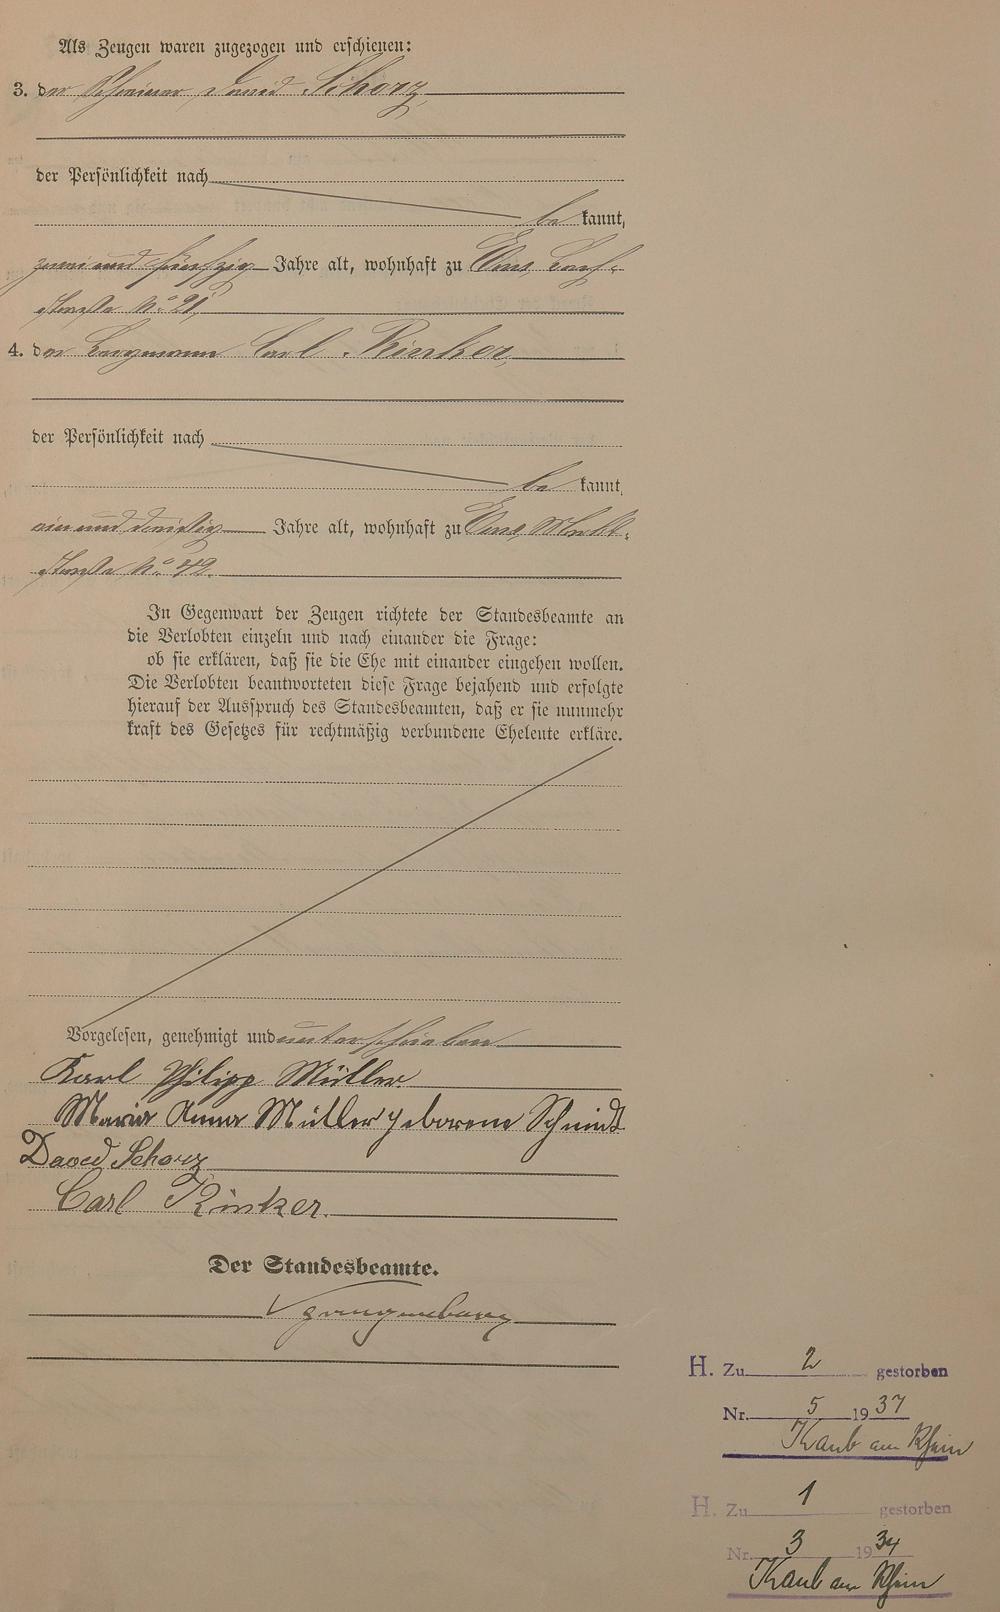 Als Zeugen waren zugezogen und erschienen:
3. der Schreiner David Schorz,
der Persönlichkeit nach
be kannt,
zwei und fünfzig Jahre alt, wohnhaft zu Ems, Bach-
straße No 21,
4. der Bergmann Carl Rinker,
der Persönlichkeit nach
be kannt,
ein und dreißig Jahre alt, wohnhaft zu Ems,
straße No 42.
In Gegenwart der Zeugen richtete der Standesbeamte an
die Verlobten einzeln und nach einander die Frage:
ob sie erklären, daß sie die Ehe mit einander eingehen wollen.
Die Verlobten beantworteten diese Frage bejahend und erfolgte
hierauf der Ausspruch des Standesbeamten, daß er sie nunmehr
kraft des Gesetzes für rechtmäßig verbundene Eheleute erkläre.
Vorgelesen, genehmigt und unterschrieben
Karl Philipp Müller
Maria Anna Müller geborene Schmidt
David Schorz
Carl Rinker.
Der Standesbeamte.
H. Zu 2 gestorben
Nr. 5 1937
Kaub am Rhein
H. Zu 1 gestorben
Nr. 3 1934
Kaub am Rhein